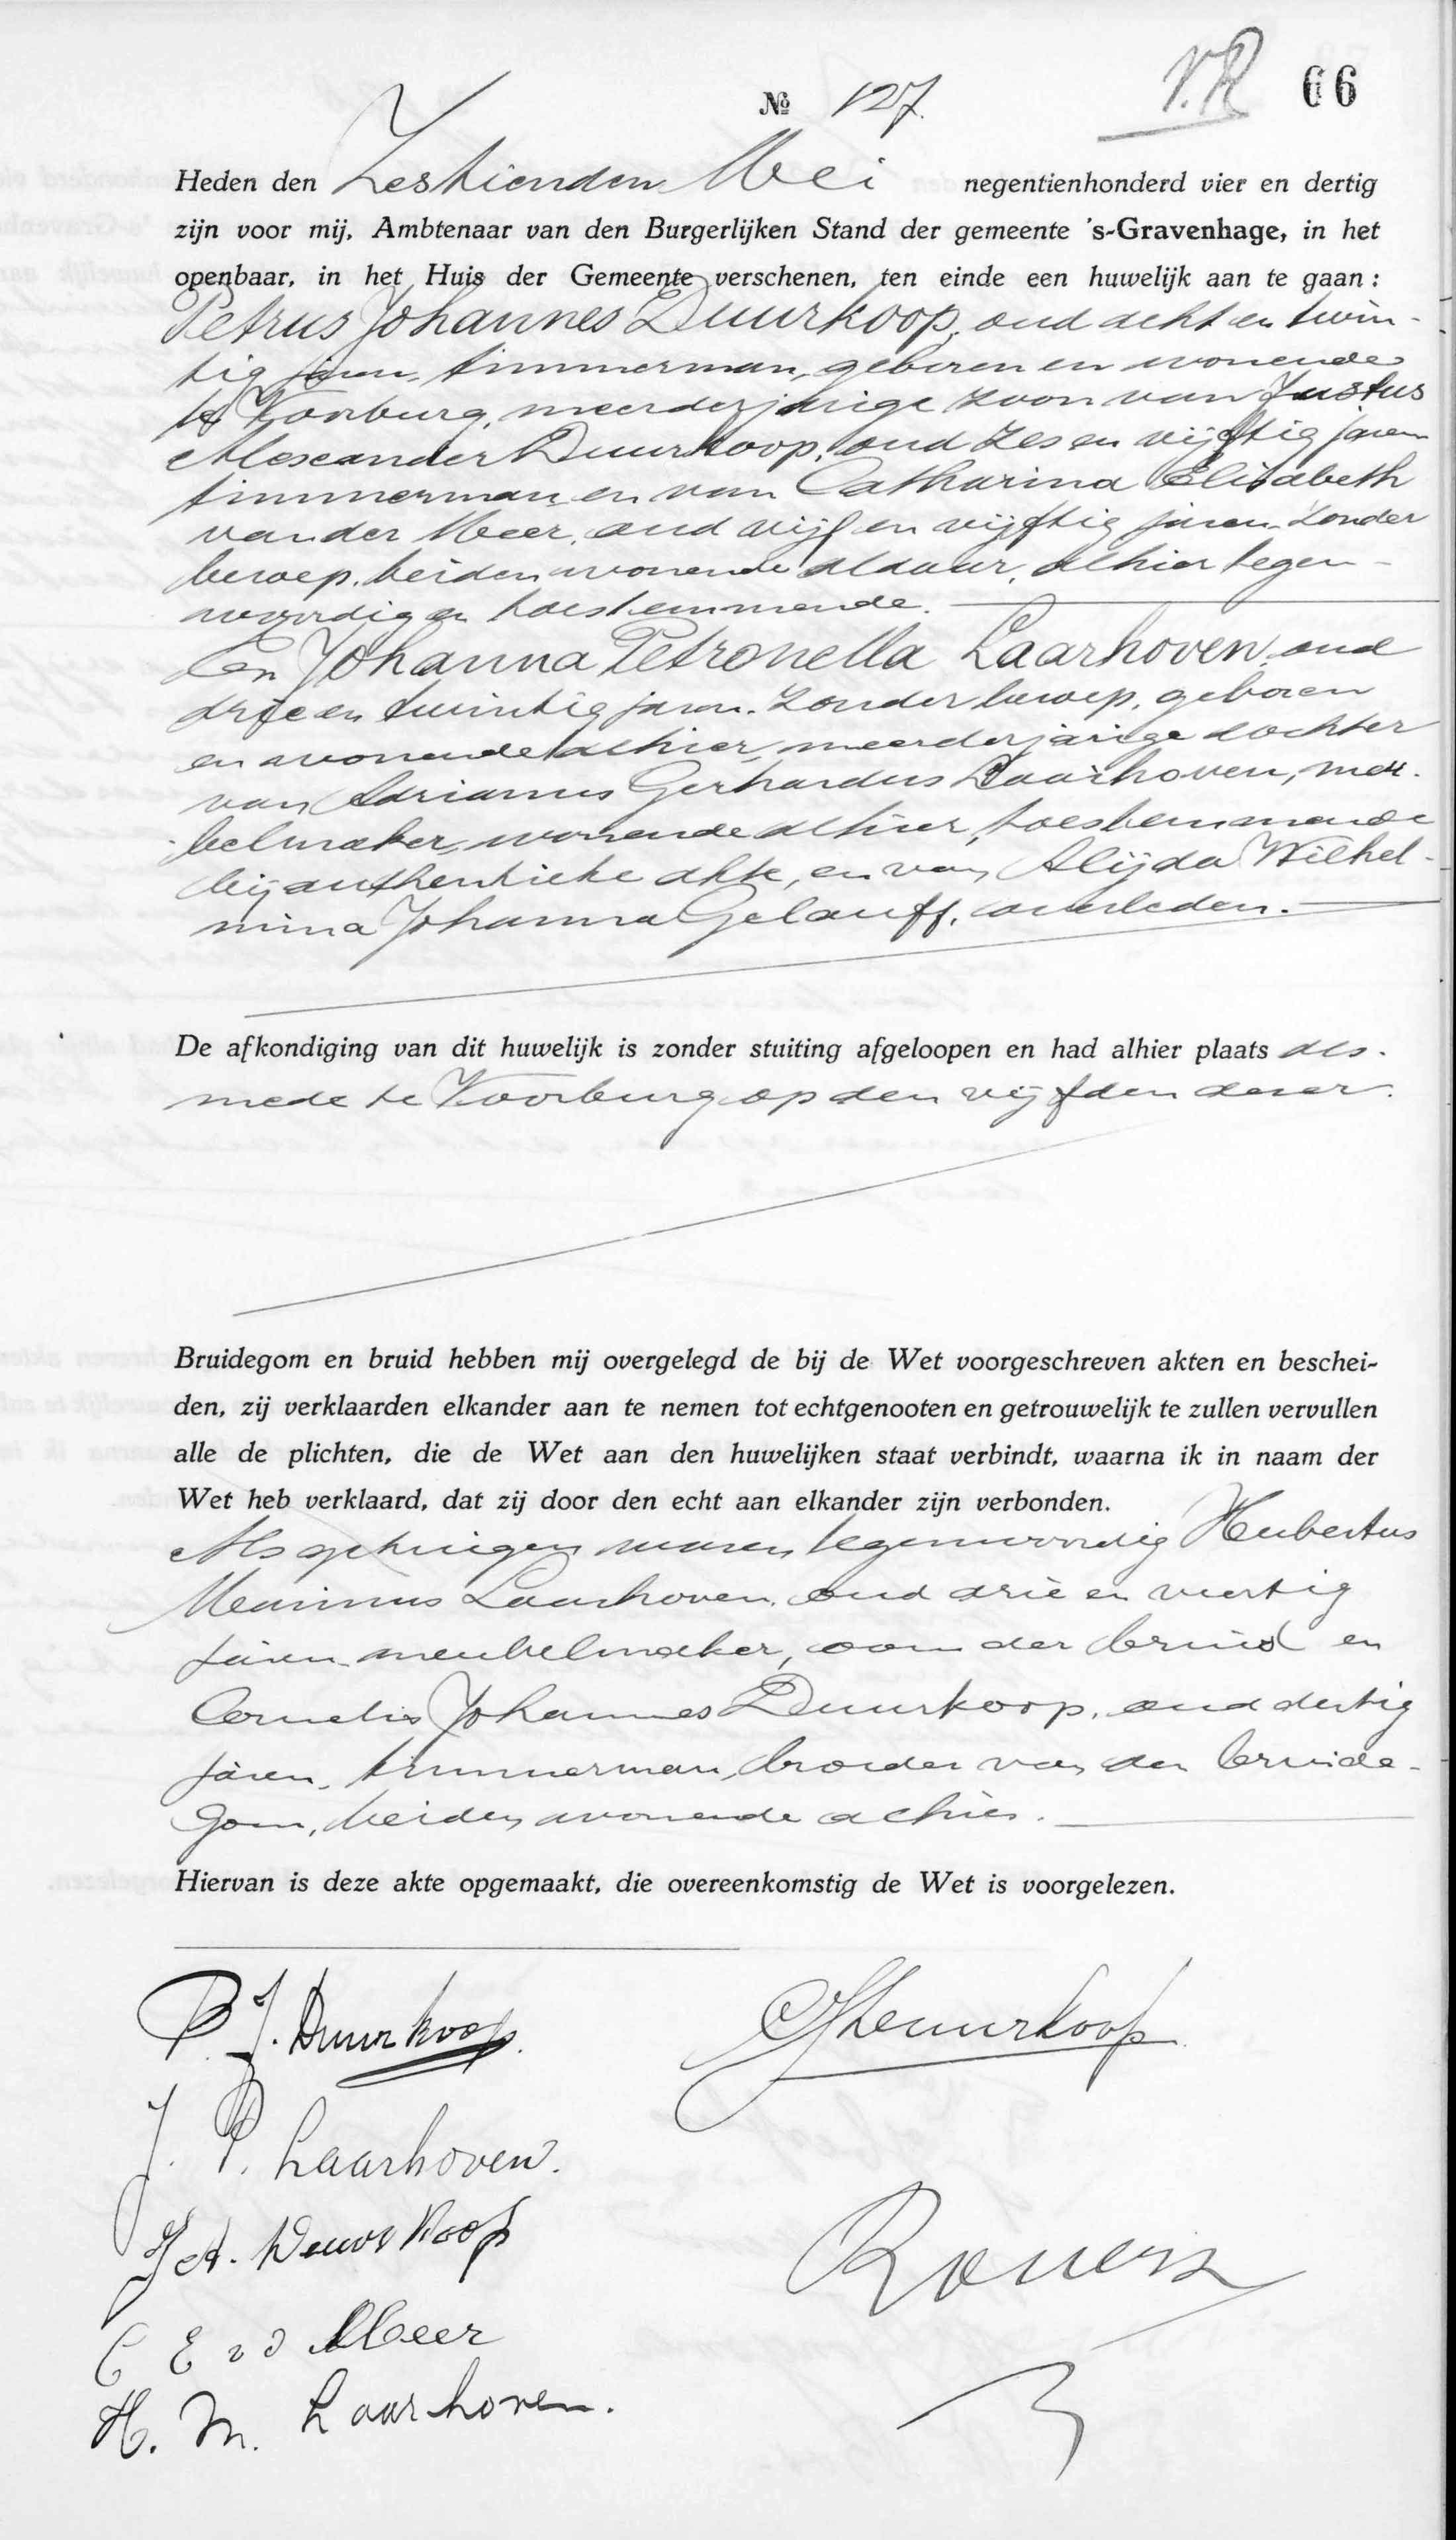 V.R 66
№ 127.
Heden den Zestienden Mei negentienhonderd vier en dertig
zijn voor mij, Ambtenaar van den Burgerlijken Stand der gemeente 's-Gravenhage, in het
openbaar, in het Huis der Gemeente verschenen, ten einde een huwelijk aan te gaan:
Petrus Johannes Duurkoop, oud acht en twin-
tig jaren, timmerman, geboren en wonende
te Voorburg, meerderjarige zoon van Justus
Alexander Duurkoop, oud zes en vijftig jaren
timmerman en van Catharina Elisabeth
van der Meer, oud vijf en vijftig jaren, zonder
beroep, beiden wonende aldaar, alhier tegen-
woordig en toestemmende.
En Johanna Petronella Laarhoven, oud
drie en twintig jaren, zonder beroep, geboren
en wonende alhier, meerderjarige dochter
van Adrianus Gerhardus Laarhoven, meu-
belmaker, wonende alhier, toestemmende
bij authentieke akte, en van Alijda Wilhel-
mina Johanna Gelauff, overleden.
De afkondiging van dit huwelijk is zonder stuiting afgeloopen en had alhier plaats als-
mede te Voorburg op den vijfden dezer.
Bruidegom en bruid hebben mij overgelegd de bij de Wet voorgeschreven akten en beschei-
den, zij verklaarden elkander aan te nemen tot echtgenooten en getrouwelijk te zullen vervullen
alle de plichten, die de Wet aan den huwelijken staat verbindt, waarna ik in naam der
Wet heb verklaard, dat zij door den echt aan elkander zijn verbonden.
Als getuigen waren tegenwoordig Hubertus
Marinus Laarhoven, oud drie en veertig
jaren, meubelmaker, oom der bruid en
Cornelis Johannes Duurkoop, oud dertig
jaren, timmerman, broeder van den bruide-
gom, beiden wonende alhier.
Hiervan is deze akte opgemaakt, die overeenkomstig de Wet is voorgelezen.
P. J. Duurkoop. CJDuurkoop
J. P. Laarhoven.
J A. Duurkoop
C E v d Meer
H. M. Laarhoven.